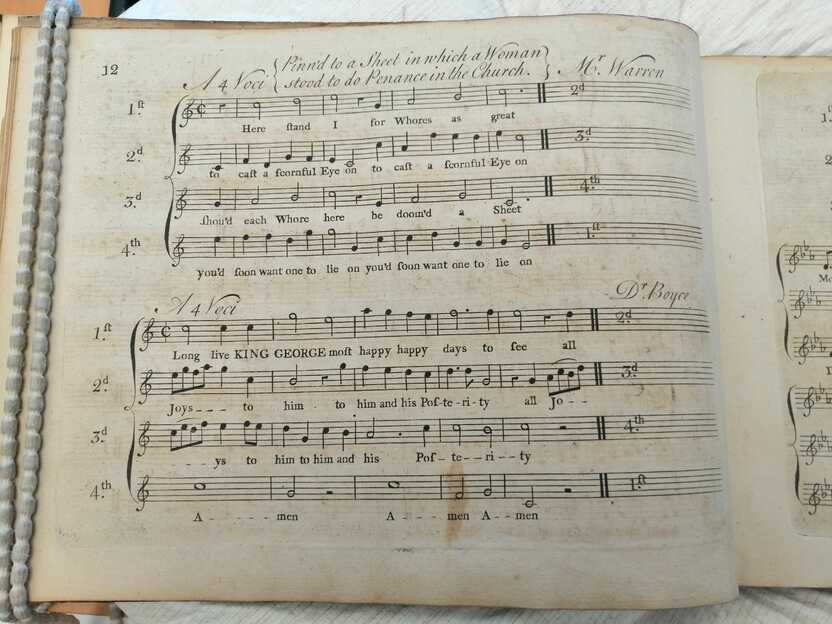 12
Pinn'd to a Sheet in which a Woman
A 4 Voci stood to do Penance in the Church. Mr. Warren
1.st 2d
Here ſtand I for Whores as great
2.d 3.d
to caſt a ſcornful Eye on to caſt a ſcornful Eye on
3.d 4.th
ſhou'd each Whore here be doom'd a Sheet
4.th 1.st
you'd ſoon want one to lie on you'd ſoon want one to lie on
A 4 Voci Dr Boyce
1.ſt 2.d
Long live KING GEORGE moſt happy happy days to ſee all
2.d 3.d
Joys - - - - to him - to him and his Poſ - te - ri - ty all Jo - -
3.d 4.th
- - - ys to him to him and his Poſ - te - - ri - - ty
4.th 1.ſt
A - - - - men A - - - men A - - men